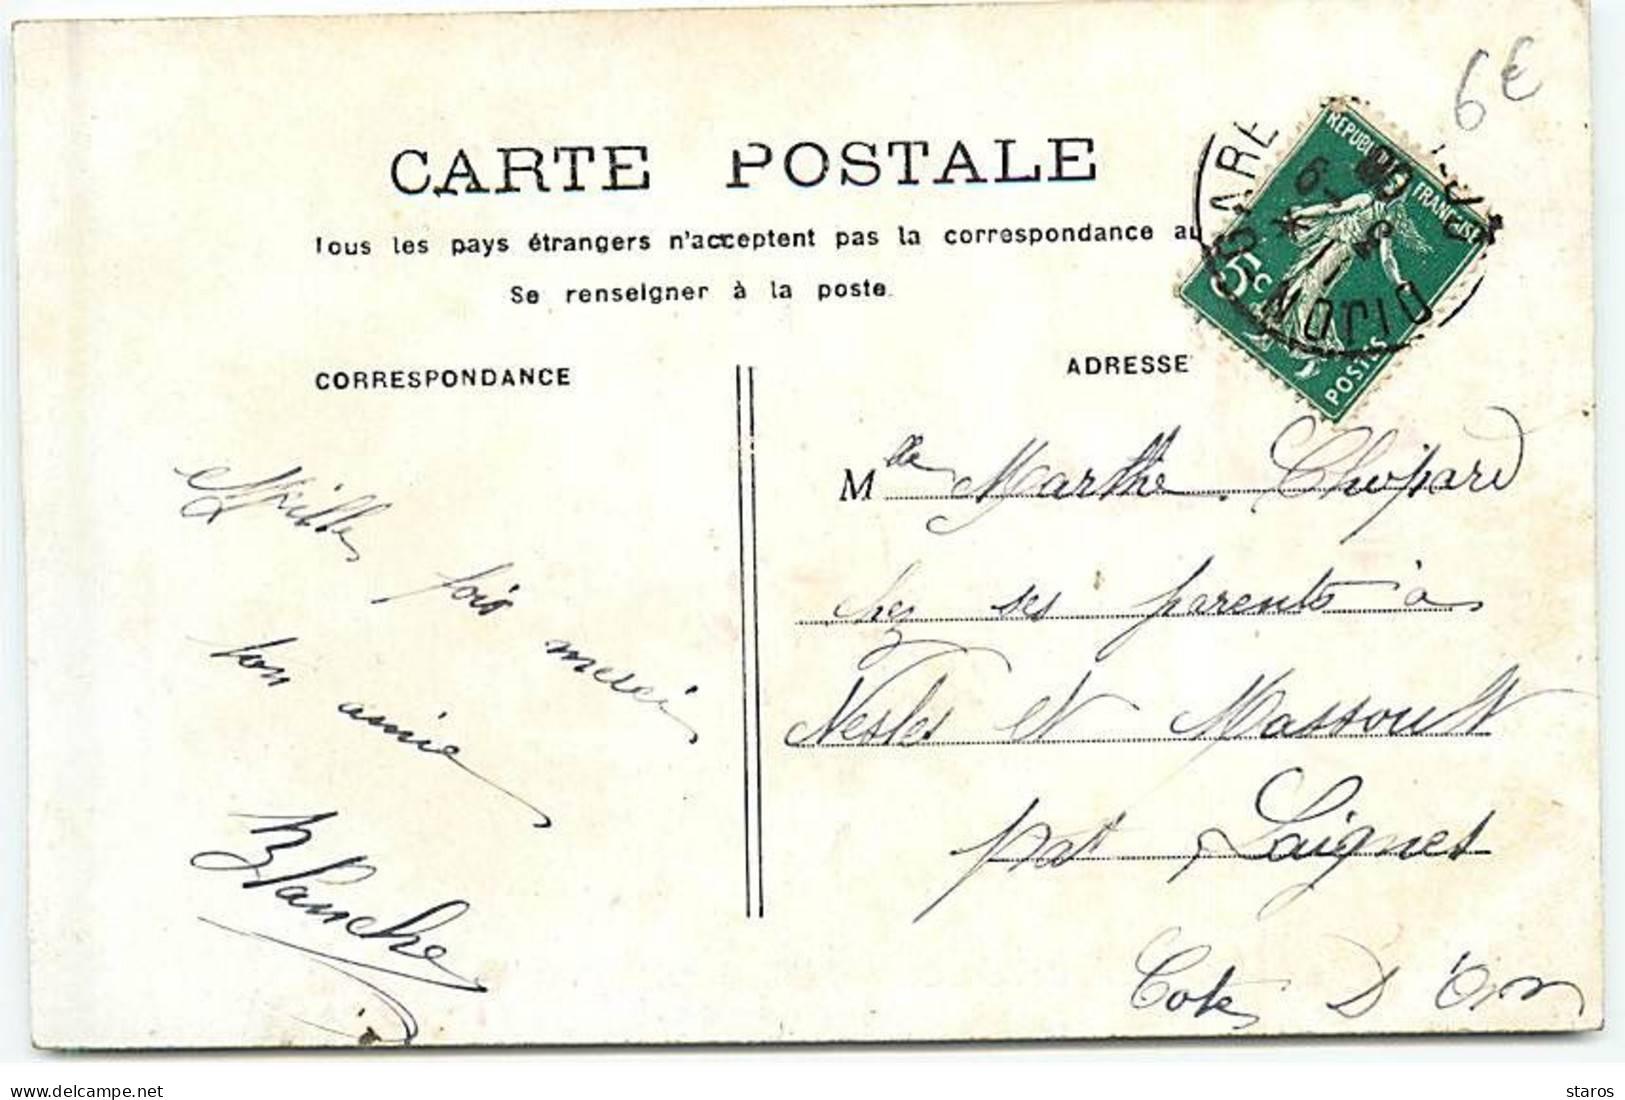 6€
CARTE POSTALE
Tous les pays étrangers n'acceptent pas la correspondance au
Se renseigner à la poste.
CORRESPONDANCE
ADRESSE
REPUBLIQUE FRANÇAISE
5c
POSTES
DIJON GARE
Mille fois merci
ton amie
Blanche
Mlle Marthe Chopard
chez ses parents à
Nesles et Massoult
par Laignes
Cote D'Or
www.delcampe.net
staros